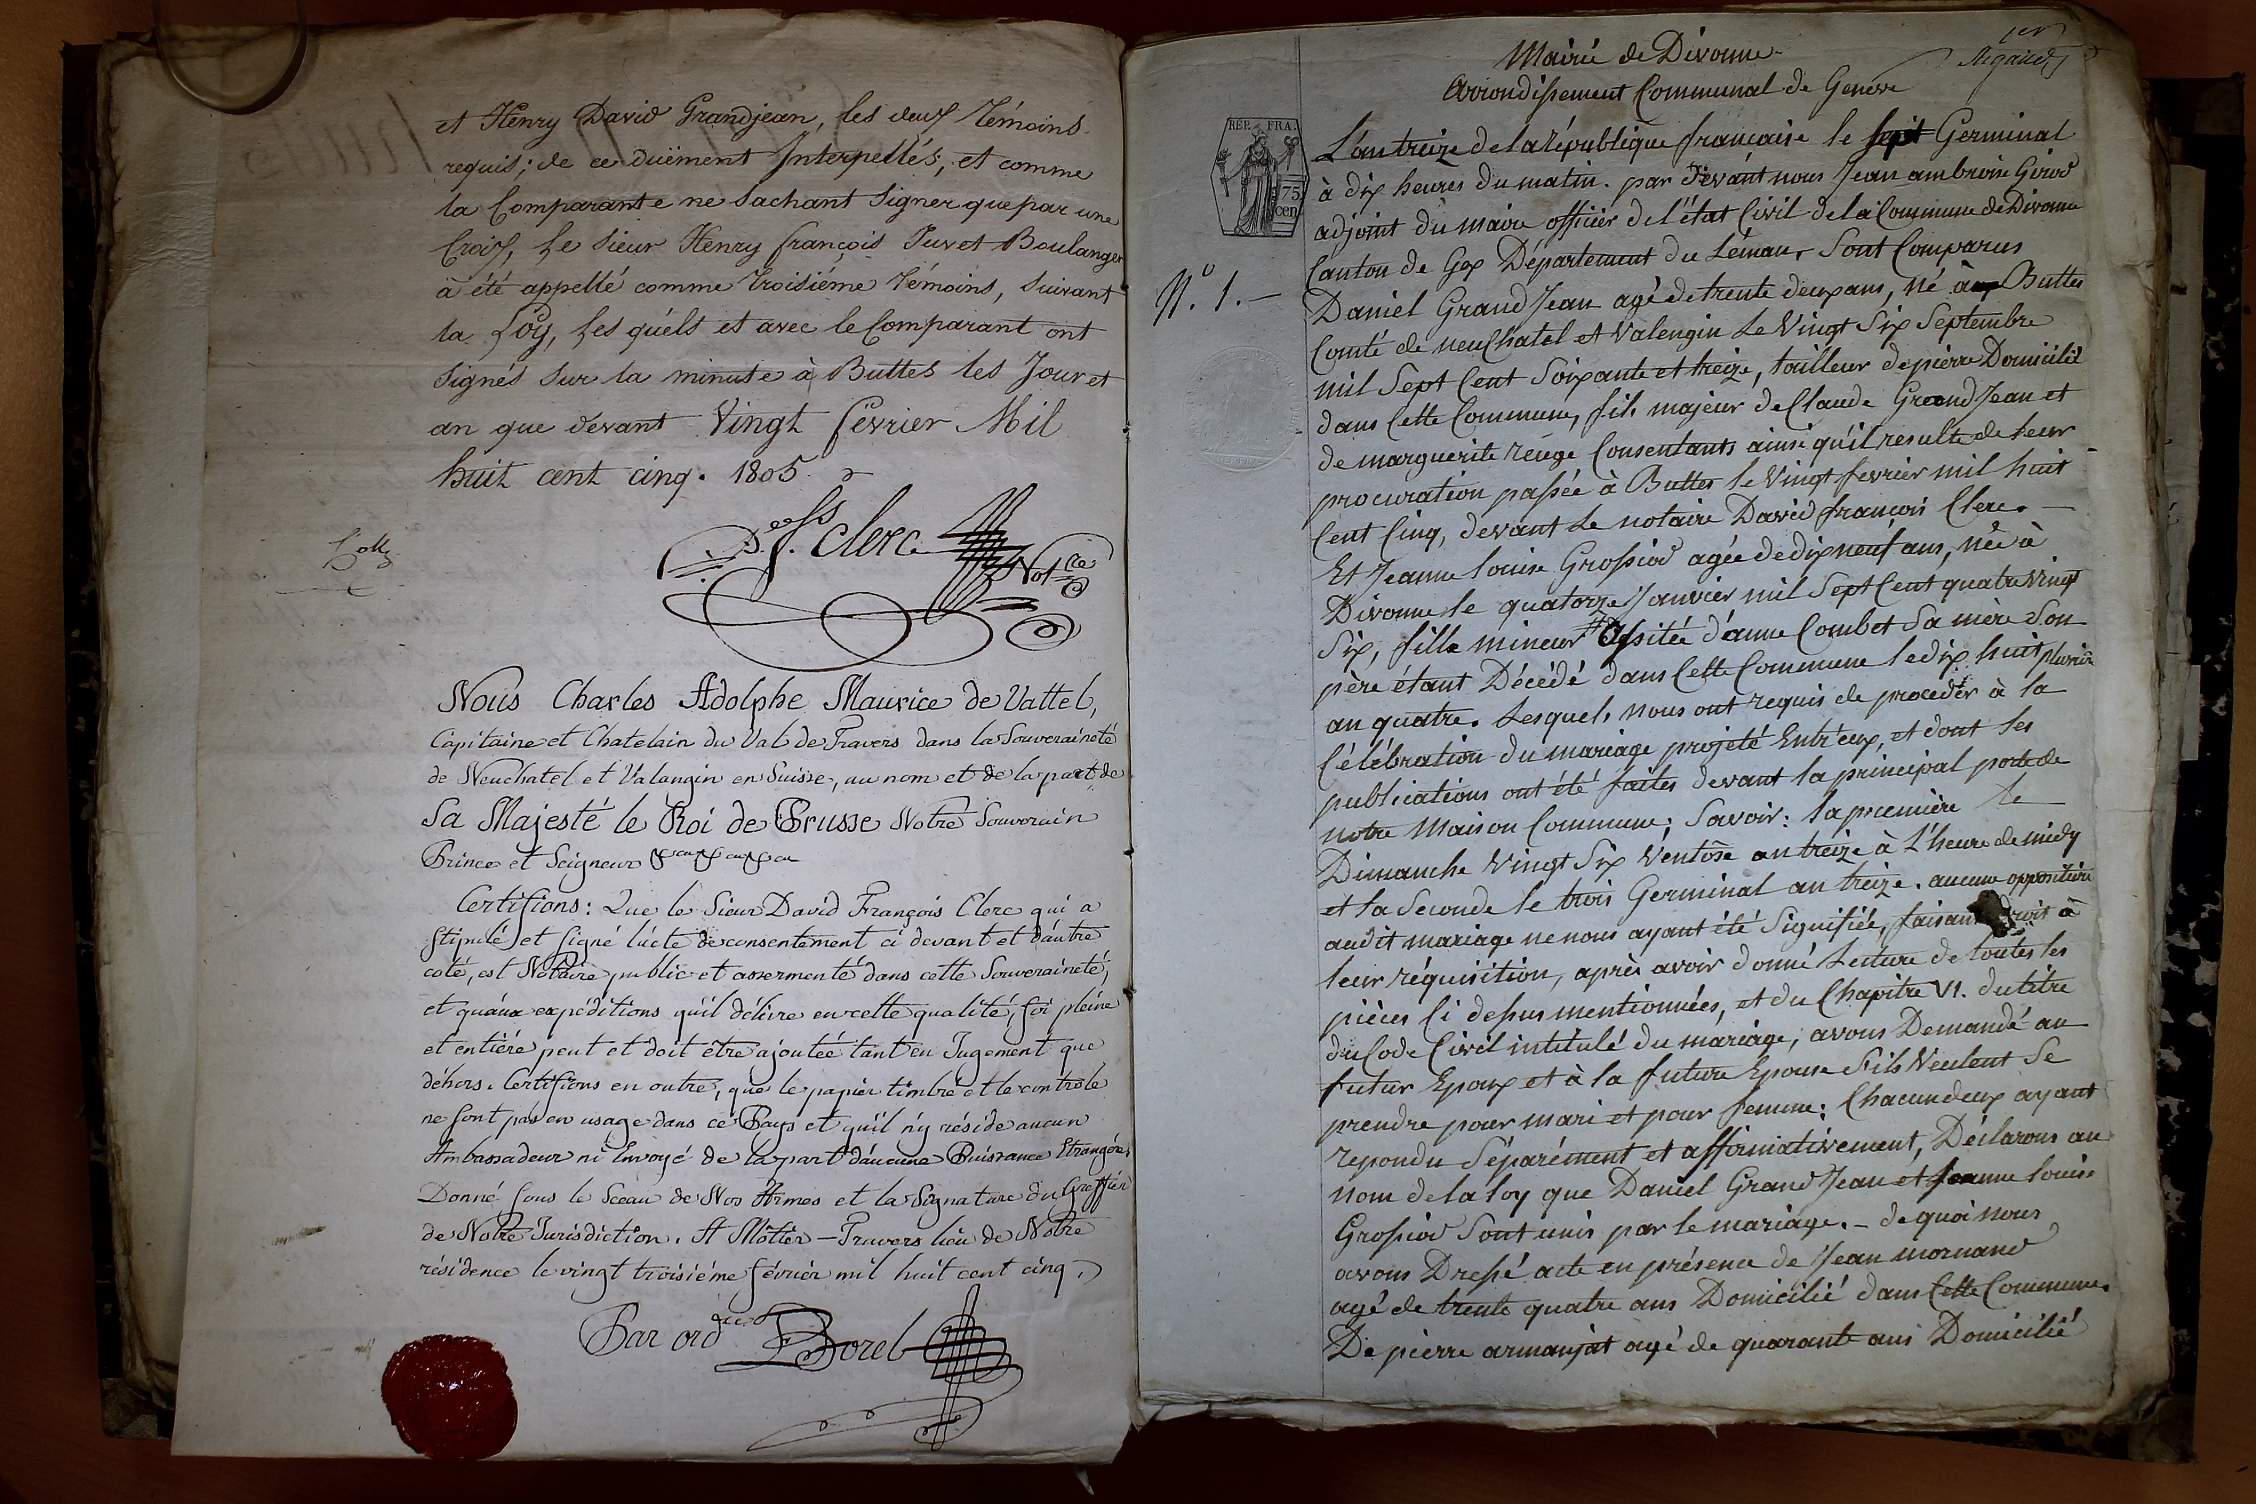 et Henry David Grandjean, les deux Témoins
requis; de ce duëment Interpellés; et comme
la Comparante ne sachant signer que par une
Croix, Le Sieur Henry françois Juvet Boulanger
à été appellé comme troisiéme Témoins, suivant
la Loÿ, Les quéls et avec le Comparant ont
signés sur la minute à Buttes les Jour et
an que devant Vingt février Mil
huit cent cinq. 1805
D. f. Clerc Not.re
Coll
Nous Charles Adolphe Maurice de Vattel,
Capitaine et Chatelain du Val de Travers dans la Souveraineté
de Neuchatel et Valangin en Suisse, au nom et de la part de
Sa Majesté le Roi de Prusse Notre Souverain
Prince et Seigneur
Certifions: Que le Sieur David François Clerc qui a
stipulé et signé l'acte de consentement ci devant et d'autre
coté, est Notaire public et assermenté dans cette Souveraineté,
et qu'aux expéditions qu'il délivre en cette qualité, foi pleine
et entiére peut et doit être ajoutée tant en Jugement que
déhors. Certifions en outre, que le papier timbré et le controle
ne sont pas en usage dans ce Pays et qu'il n'y réside aucun
Ambassadeur ni Envoyé de la part d'aucune Puissance Etrangére.
Donné sous le Sceau de Nos Armes et la Signature du Greffier
de Notre Jurisdiction. A Môtier-Travers lieu de Notre
résidence le vingt troisiéme février mil huit cent cinq.
Par ord Borel
Mairie de Divonne
Arrondissement Communal de Genéve
REP. FRA.
75
cen
N.° 1.
L'an treize de la république française le sept Germinal
à dix heures du matin. par devant nous Jean ambroise Girod
adjoint du maire officier de l'état Civil de la Commune de Divonne
Canton de Gex Département du Léman, Sont Comparus
Daniel Grand Jean agé de trente deux ans, né à Buttes
Comté de neuchatel et Valengin Le Vingt Six Septembre
mil Sept Cent Soixante et treize, tailleur de pierre Domicilié
dans Cette Commune, fils majeur de Claude Grand Jean et
de marguerite reuge Consentants ainsi qu'il resulte de leur
procuration passée à Buttes le Vingt fevrier mil huit
Cent Cinq, devant Le notaire David françois Clerc.
Et Jeanne louise Grossiod agée de dix neuf ans, née à
Divonne le quatorze Janvier mil Sept Cent quatre Vingt
Six, fille mineur Assitée d'anne Combet Sa mère Son
père étant Décédé dans Cette Commune le dix huit pluviôse
an quatre. Lesquels nous ont requis de proceder à la
Célébration du mariage projeté Entr'eux, et dont les
publications ont été faites devant la principal porte de
notre Maison Commune; Savoir: la première le
Dimanche Vingt Six Ventôse an treize à l'heure de midy
et la Seconde le trois Germinal an treize. aucune opposition
audit mariage ne nous ayant été Signifiée, faisant droit à
leur réquisition, après avoir donné Lecture de toutes les
pièces Ci dessus mentionnées, et du Chapitre VI. du titre
du Code Civil intitulé du mariage, avons Demandé au
futur Epoux et à la future Epouse S'ils Veulent Se
prendre pour mari et pour femme: Chacun d'eux ayant
repondu Séparément et affirmativement, Déclarons au
nom de la loy que Daniel Grand Jean et Jeanne louise
Grossiod Sont unis par le mariage. - de quoi nous
avons Dressé acte en présence de Jean mornand
agé de trente quatre ans Domicilié dans Cette Commune.
De pierre armanjat agé de quarante ans Domicilié